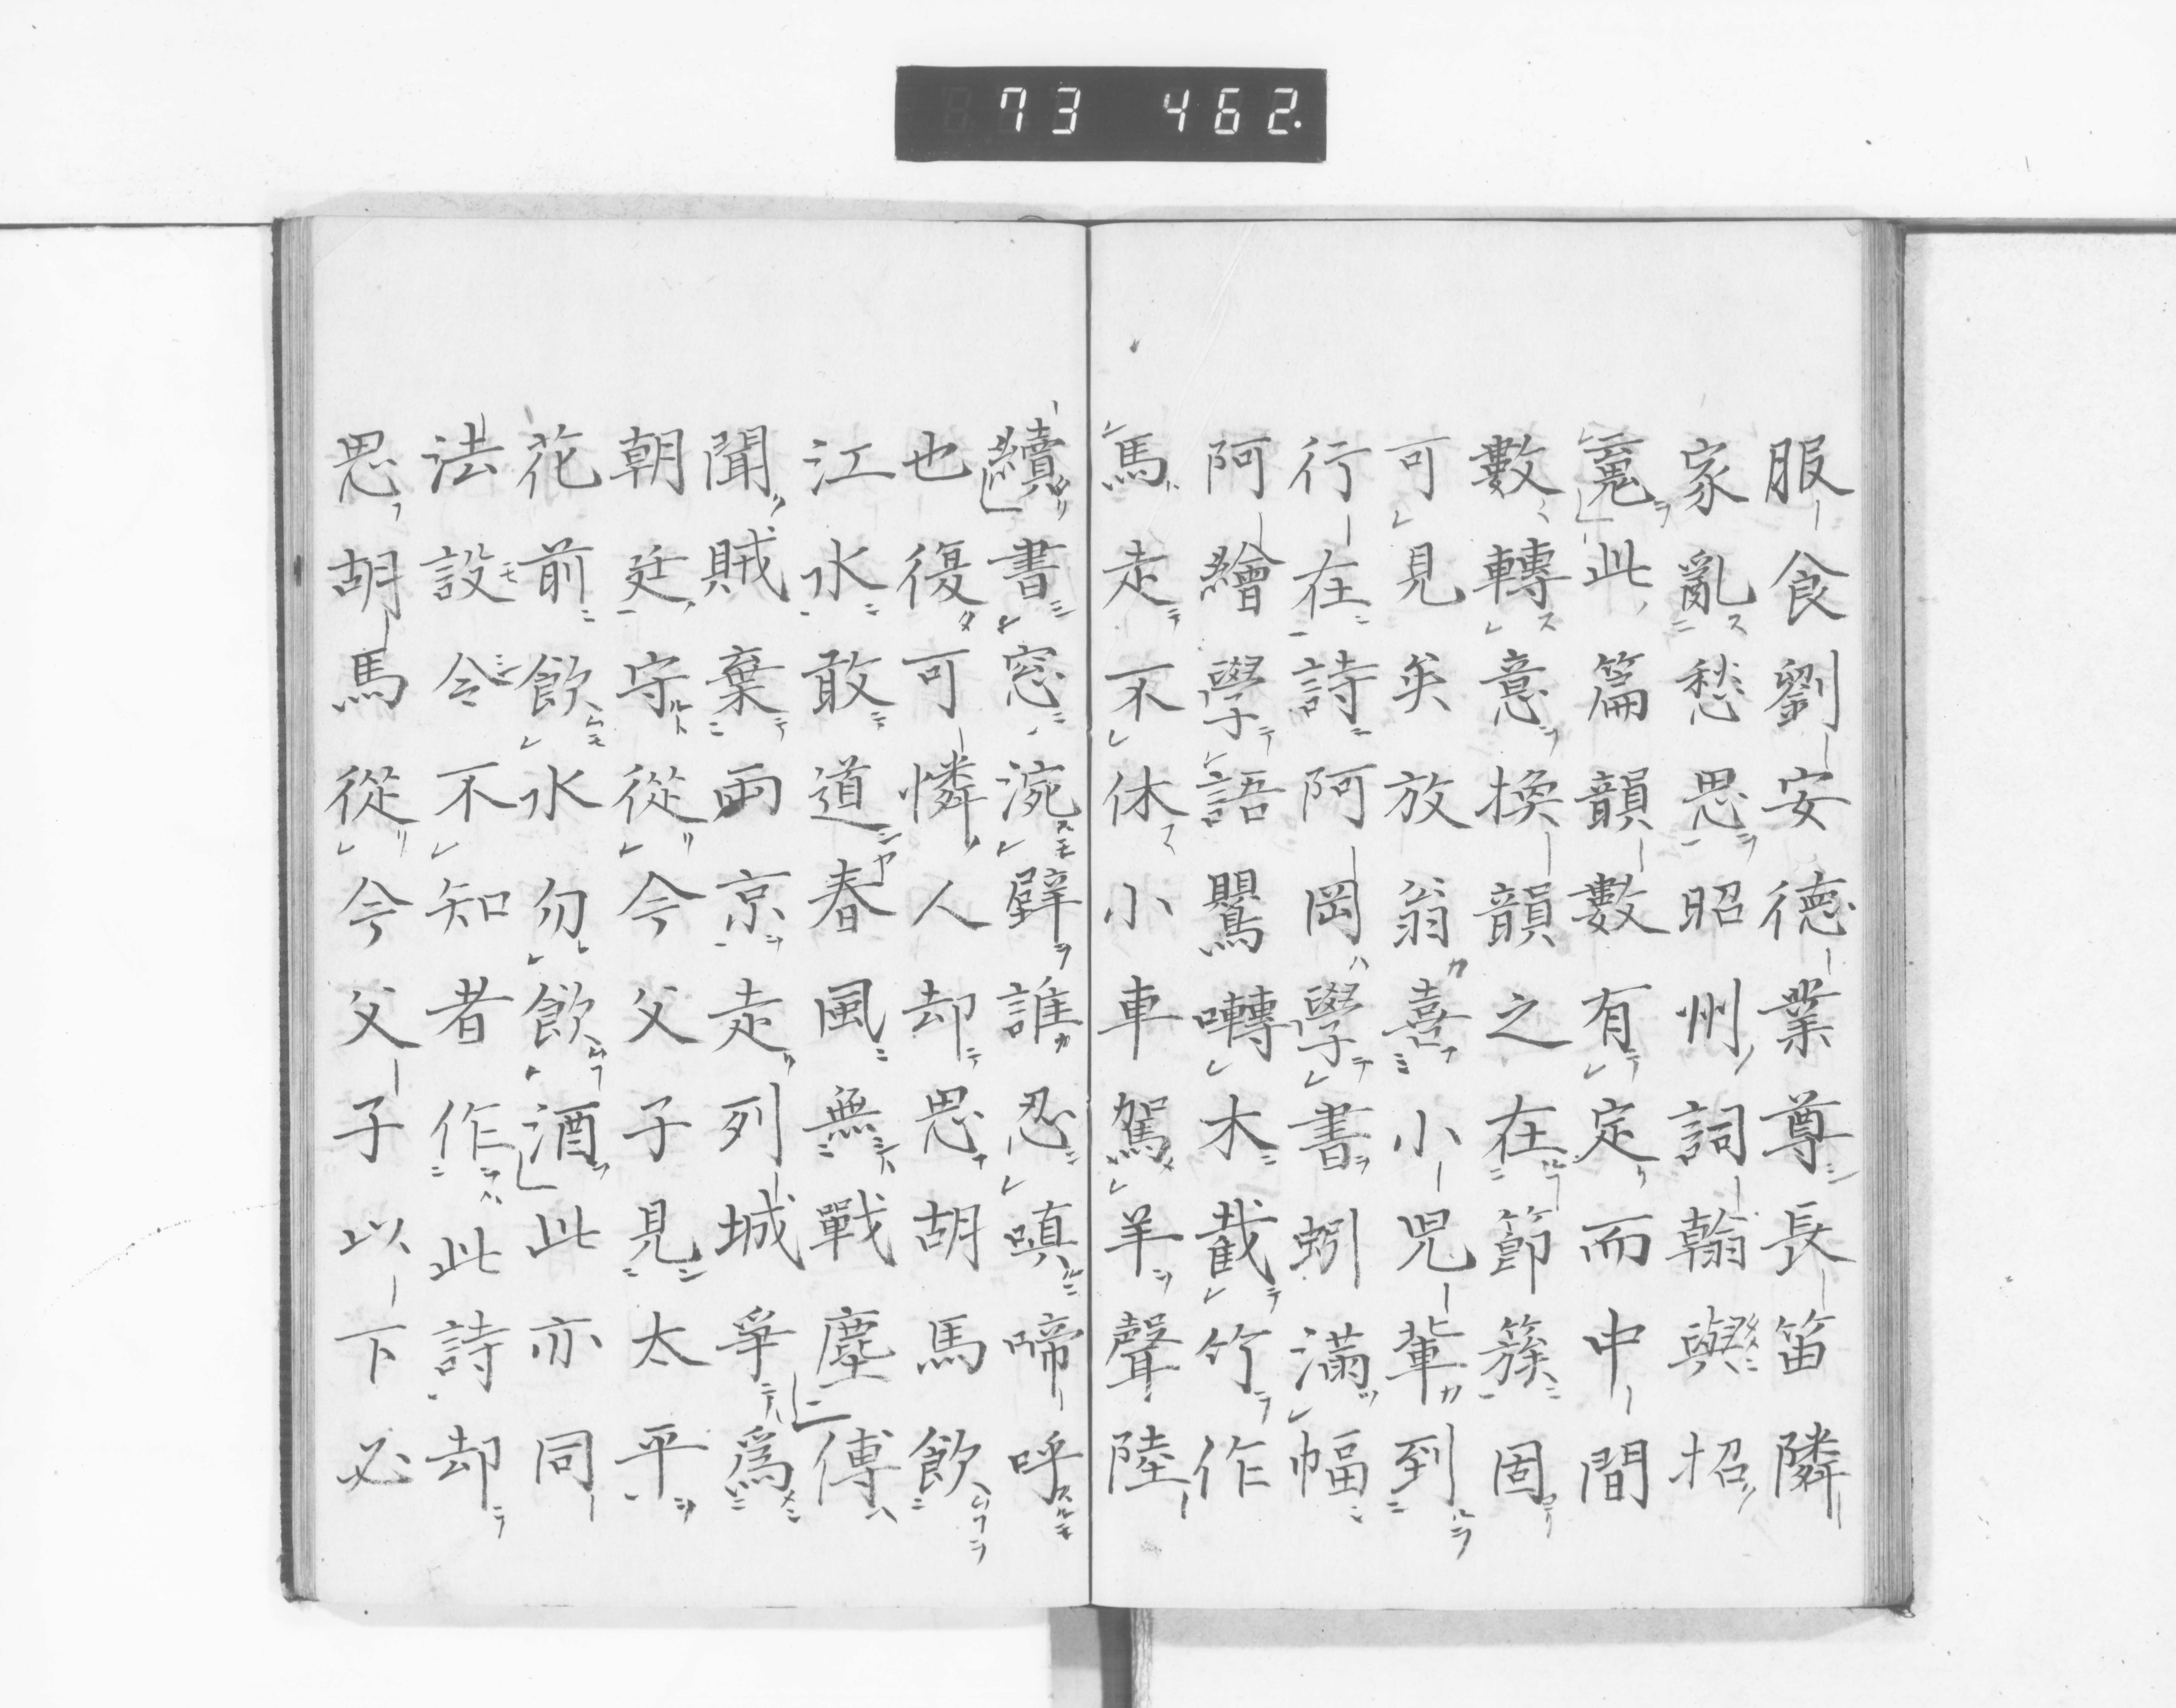 73 462.
服食劉安德業尊長笛隣
家亂愁思昭州詞翰與招
䰟此篇韻數有定而中間
數轉意換韻之在節簇固
可見矣放翁喜小兒輩到
行在詩阿岡學書蚓滿幅
阿繪學語鸎囀木截竹作
馬走不休小車駕羊聲陸
續書窓涴壁誰忍嗔啼呼
也復可憐人却思胡馬飲
江水敢道春風無戰塵傳
聞賊棄兩京走列城爭爲
朝廷守從今父子見太平
花前飲水勿飲酒此亦同
法設令不知者作此詩却
思胡馬從今父子以下必